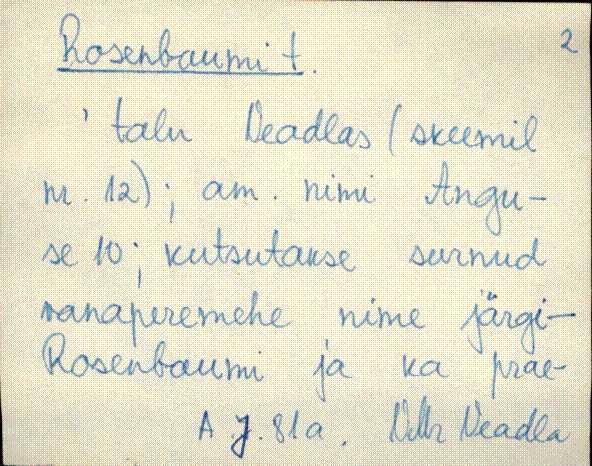 Rosenbaumi t. 2
' talu Veadlas (skeemil
nr. 12); am. nimi Angu-
se 10; kutsutakse surnud
vanaperemehe nime järgi-
Rosenbaumi ja ka prae-
A.J. 81a. Vll Veadla